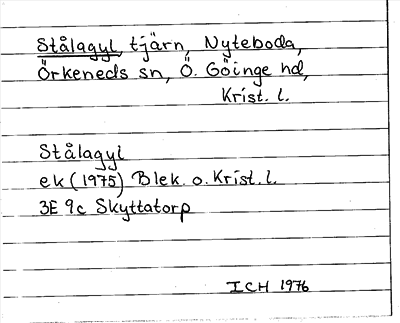 Stålagyl tjärn, Nyteboda,
Örkeneds sn, Ö. Göinge hd,
Krist. l.
Stålagyl
ek (1975) Blek. o. Krist. l.
3E 9c Skyttatorp
ICH 1976